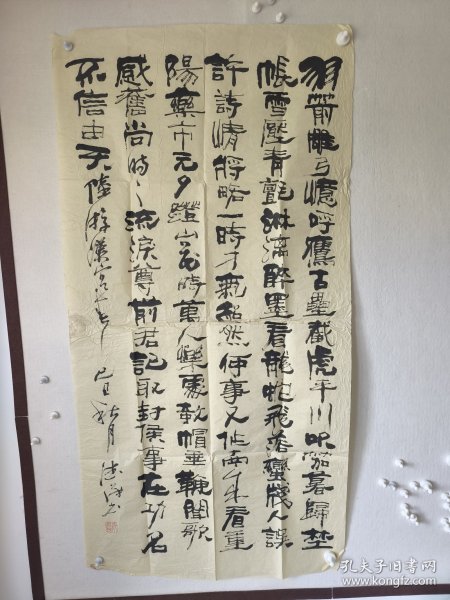 羽箭雕弓憶呼鷹古壘截虎平川吹笳暮歸埜
帳雪壓青氈淋漓醉墨看龍蛇飛落蠻牋人誤
許詩情將略一時才氣超然何事又作南來看重
陽藥市元夕燈山花時萬人樂處欹帽垂鞭聞歌
感舊尚時時流涕尊前君記取封侯事在功名
不信由天陸游漢宮春
己巳 月
孔夫子旧书网
www.kongfz.com